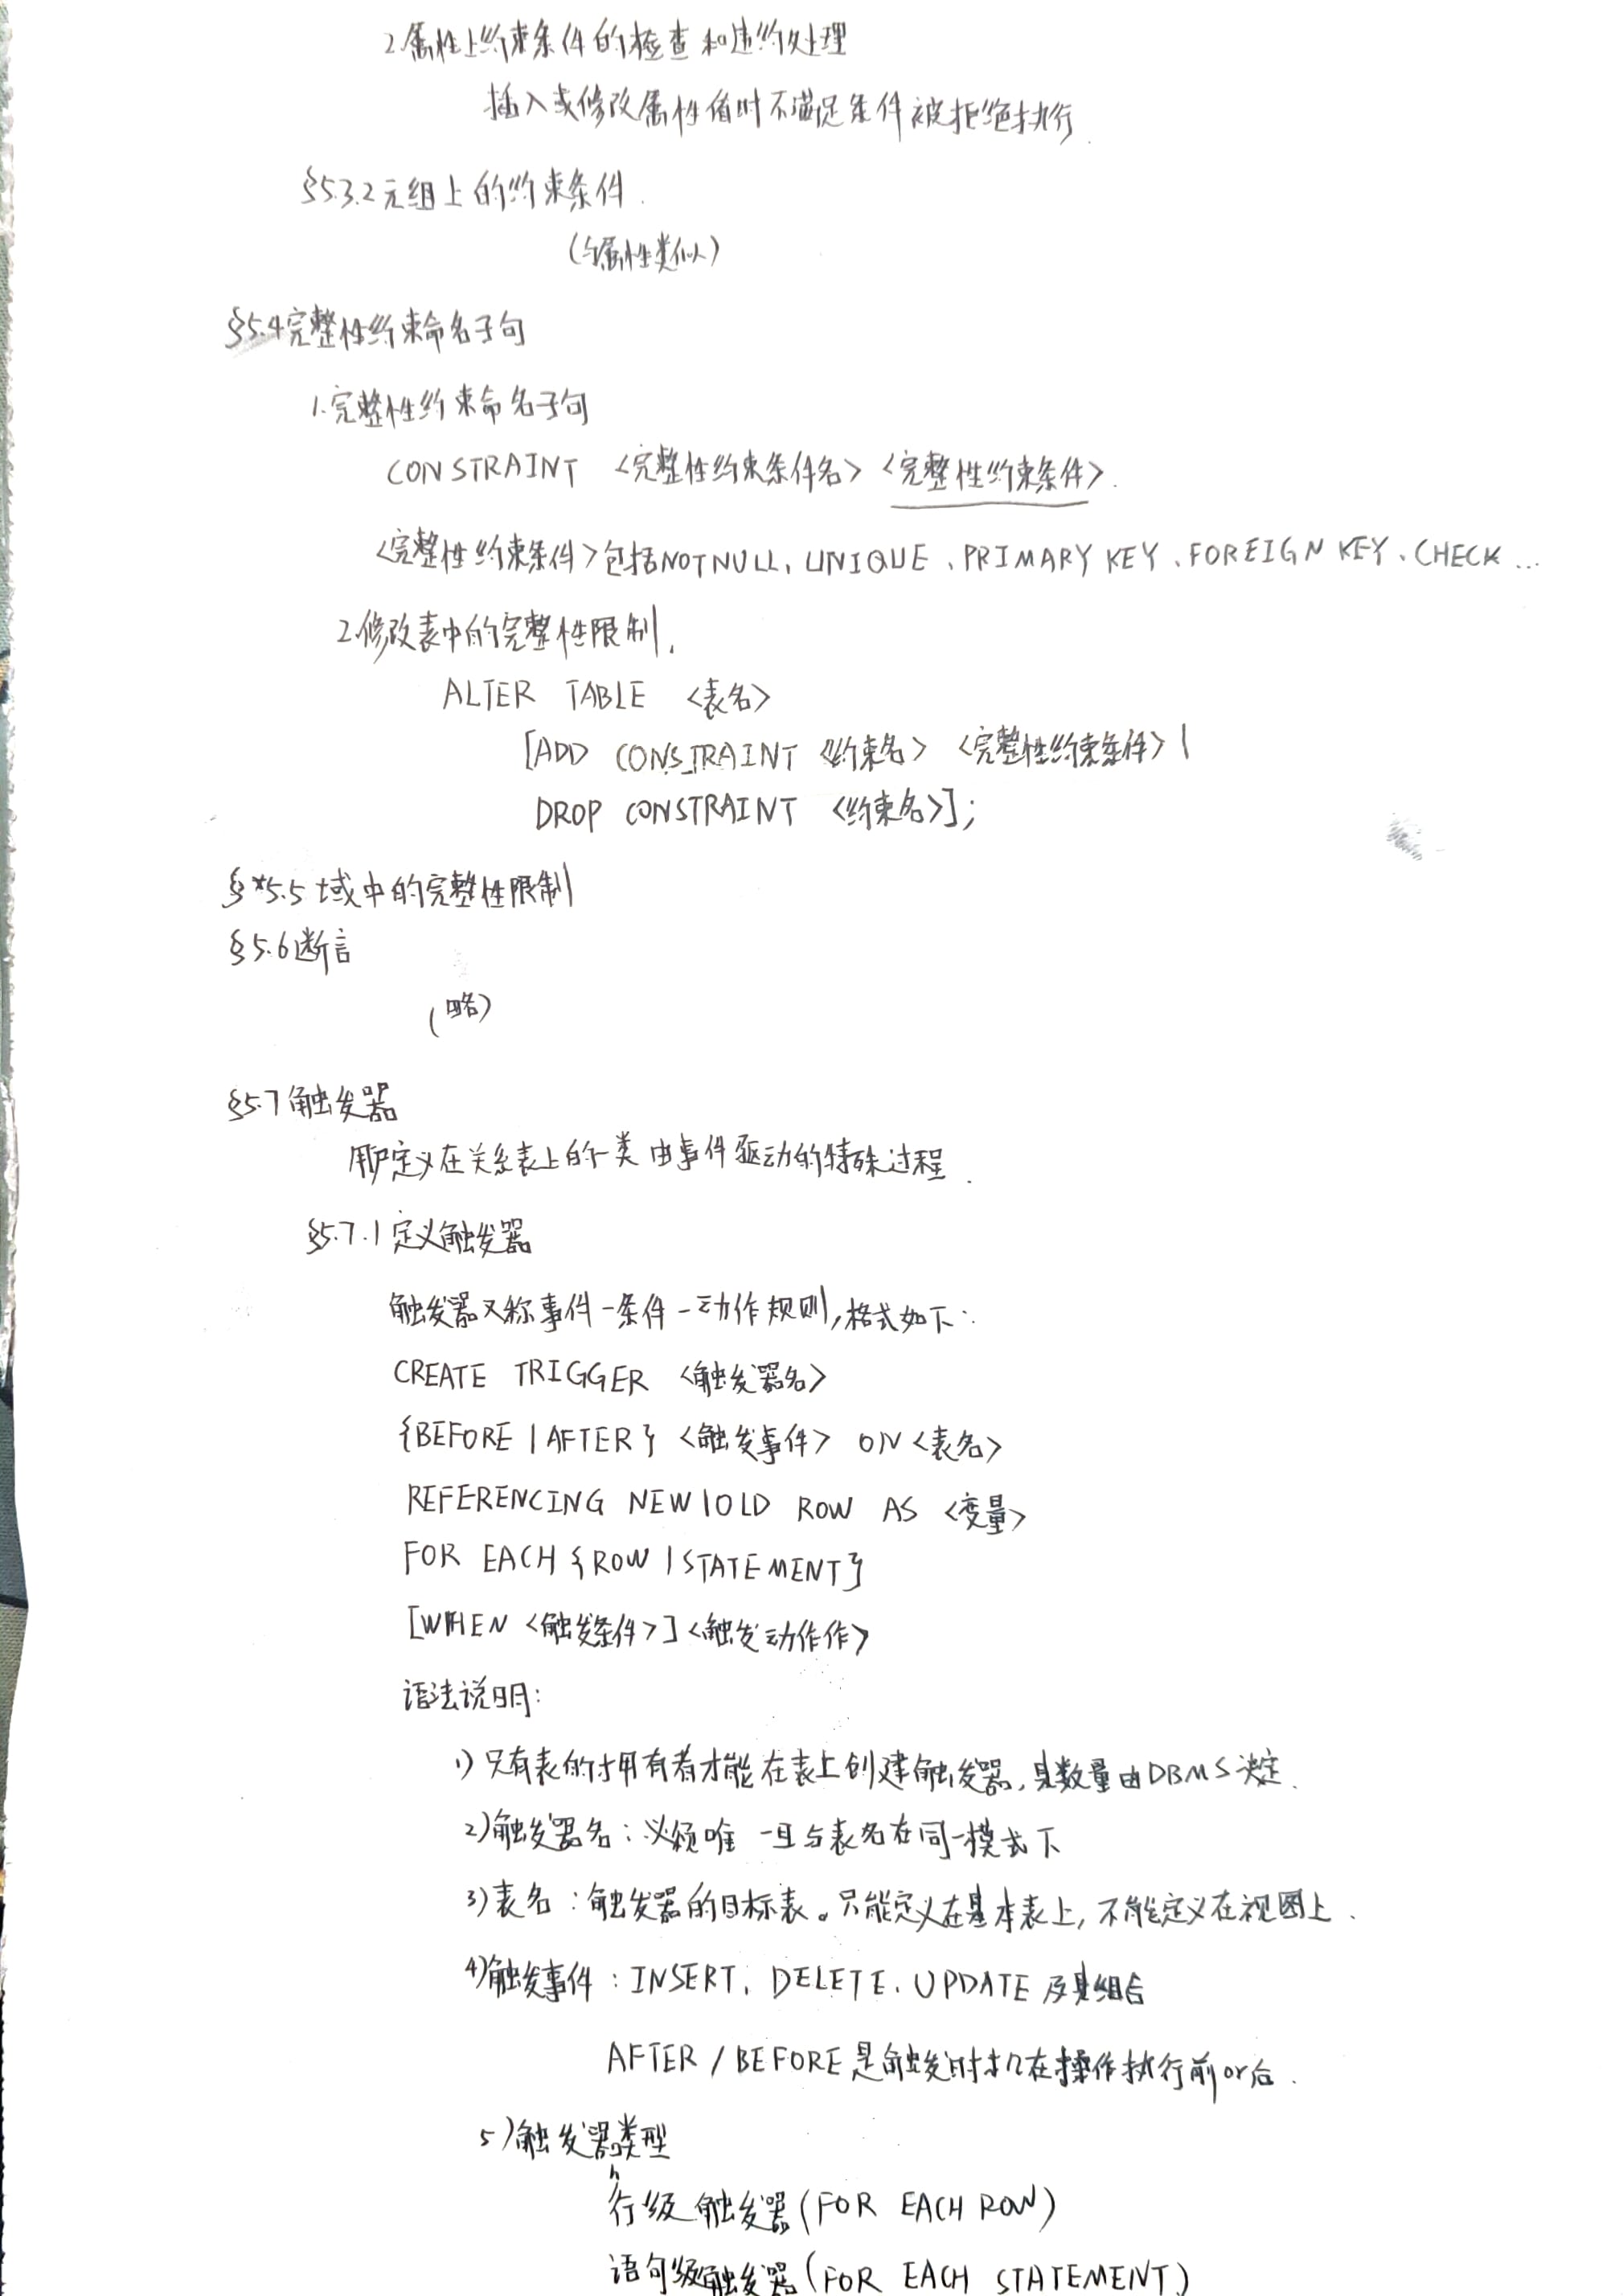 2.属性上约束条件的检查和违约处理
插入或修改属性值时不满足条件被拒绝执行.
§5.3.2元组上的约束条件.
(与属性类似)
§5.4完整性约束命名子句
1.完整性约束命名子句
CONSTRAINT <完整性约束条件名> <完整性约束条件>.
<完整性约束条件>包括NOTNULL、UNIQUE、PRIMARY KEY、FOREIGN KEY、CHECK...
2.修改表中的完整性限制.
ALTER TABLE <表名>
[ADD CONSTRAINT <约束名> <完整性约束条件>|
DROP CONSTRAINT <约束名>];
§*5.5 域中的完整性限制
§5.6断言
(略)
§5.7触发器
用户定义在关系表上的一类由事件驱动的特殊过程.
§5.7.1定义触发器
触发器又称事件-条件-动作规则,格式如下:
CREATE TRIGGER <触发器名>
{BEFORE|AFTER} <触发事件> ON <表名>
REFERENCING NEW|OLD ROW AS <变量>
FOR EACH {ROW|STATEMENT}
[WHEN <触发条件>]<触发动作作>
语法说明:
1)只有表的拥有者才能在表上创建触发器,具数量由DBMS决定.
2)触发器名:必须唯一且与表名在同一模式下
3)表名:触发器的目标表。只能定义在基本表上,不能定义在视图上.
4)触发事件:INSERT、DELETE、UPDATE及其组合
AFTER/BEFORE是触发时机在操作执行前or后.
5)触发器类型
行级触发器(FOR EACH ROW)
语句级触发器(FOR EACH STATEMENT)